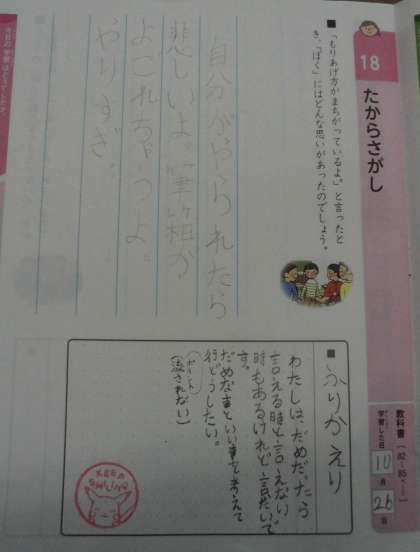 18
たからさがし
教科書
82
85ページ
学習した日
10月
26日
■「もりあげ方がまちがっているよ。」と言ったと
き、「ぼく」にはどんな思いがあったのでしょう。
自分がやられたら
悲しいよ。筆箱が
よごれちゃうよ。
やりすぎ。
■ふりかえり
わたしは、だめだったら
言える時と言えない
時もあるけれど
す。
だめなことといい
行どうしたい。
ポイント
(流されない)
今日の学習はどうでしたか?